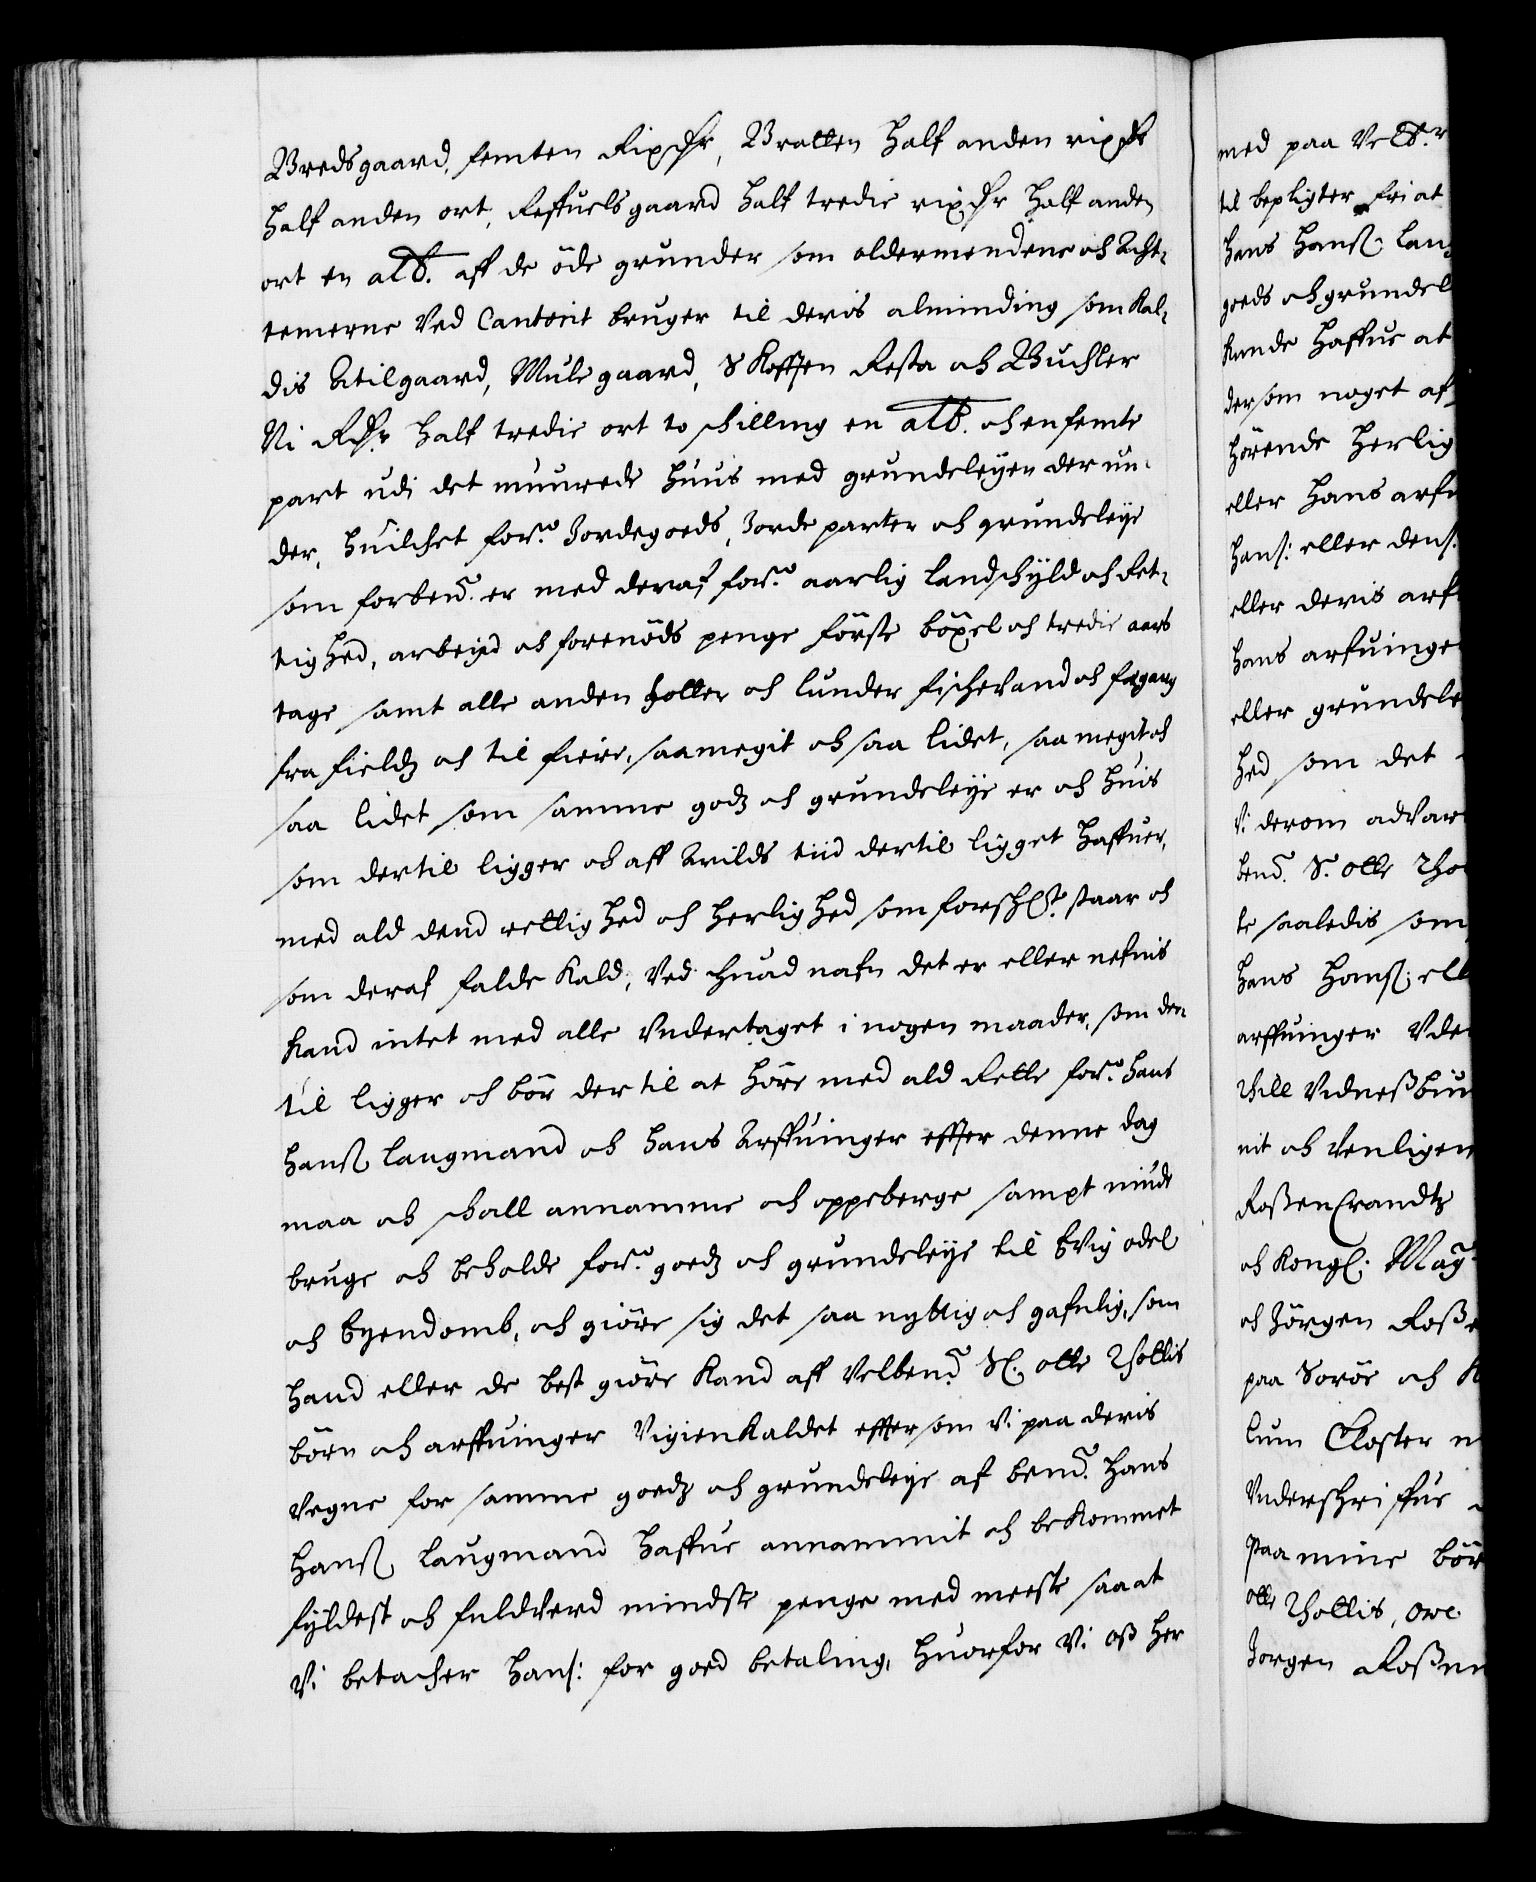 Bredsgaard, femten Rixdlr, Bratten half anden rixdlr
half anden ort, Reffuelsgaard half tredie rixdlr half anden
ort en alb. aff de öde grunder som oldermendene och Acht-
temerne ved Cantorit bruger til deris alminding som kal-
dis Atilgaard, Mulegaard, Skoffsen Resta och Buchler
Ni Rdlr half tredie ort to schilling en alb. och en femte
part udj det muurede huus med grundeleyen der un-
der, huilchet for.ne Jordegoeds, Jorde parter och grundeleye
som forbend.te er med deraf for.ne aarlig landschyld och Ret-
tighed, arbeyd och forenöds penge förste böxel och tredie aars
tage samt alle anden holter och lunder fischevand och fægang
fra fieldz och til fiere, saamegit och saa lidet, saa megit och
saa lidet som samme godz och grundeleye er och huis
som dertil ligger och aff Arilds tiid dertil ligget haffuer,
med ald dend rettighed och herlighed som forsch.t staar och
som deraf falde kald, ved huad nafn det er eller nefnis
kand intet med alle undertaget i nogen maader, som der
til ligger och bör dertil at höre med ald Rette for.ne Hans
Hanß Laugmand och hans Arffuinger effter denne dag
maa och schall annamme och oppeberge sampt niude
bruge och beholde for.ne goedz och grundeleye til Evig odel
och Eyendomb, och giöre sig det saa nyttig och gafnlig, som
hand eller de best giöre kand aff Velbend.te Sl. Olle Thottis
börn och arffuinger Vigienkaldet effter som vi paa deris
vegne for samme goedz och grundeleye af bend.te Hans
Hanß Laugmand haffue annammit och bekommet
fyldest och fuldverd mindste penge med meeste saa at
Vi betacher Hans: for goed betaling, huorfor vi oß her
med paa Velb.r
til bepligter fri at
Hans Hanß. Lau
goeds och grundel
kunde haffue at
dersom noget af
hörende herlig
eller hans arf
Hans: eller dens:
eller deris arf
hans arfuinge
eller grundele
hed som det
vi derom advar
bend.te S. Olle Tho
te saaledis som
Hans Hanß. ell
arffuinger Vde
Till Vidneßbiu
nit och venligen
Roßencrandtz
och Kongl. May.
och Jörgen Roße
paa Soröe och K
lum Closter
Underschriffue
Paa mine bör
Olle Thottis, owe
Jorgen Roßen